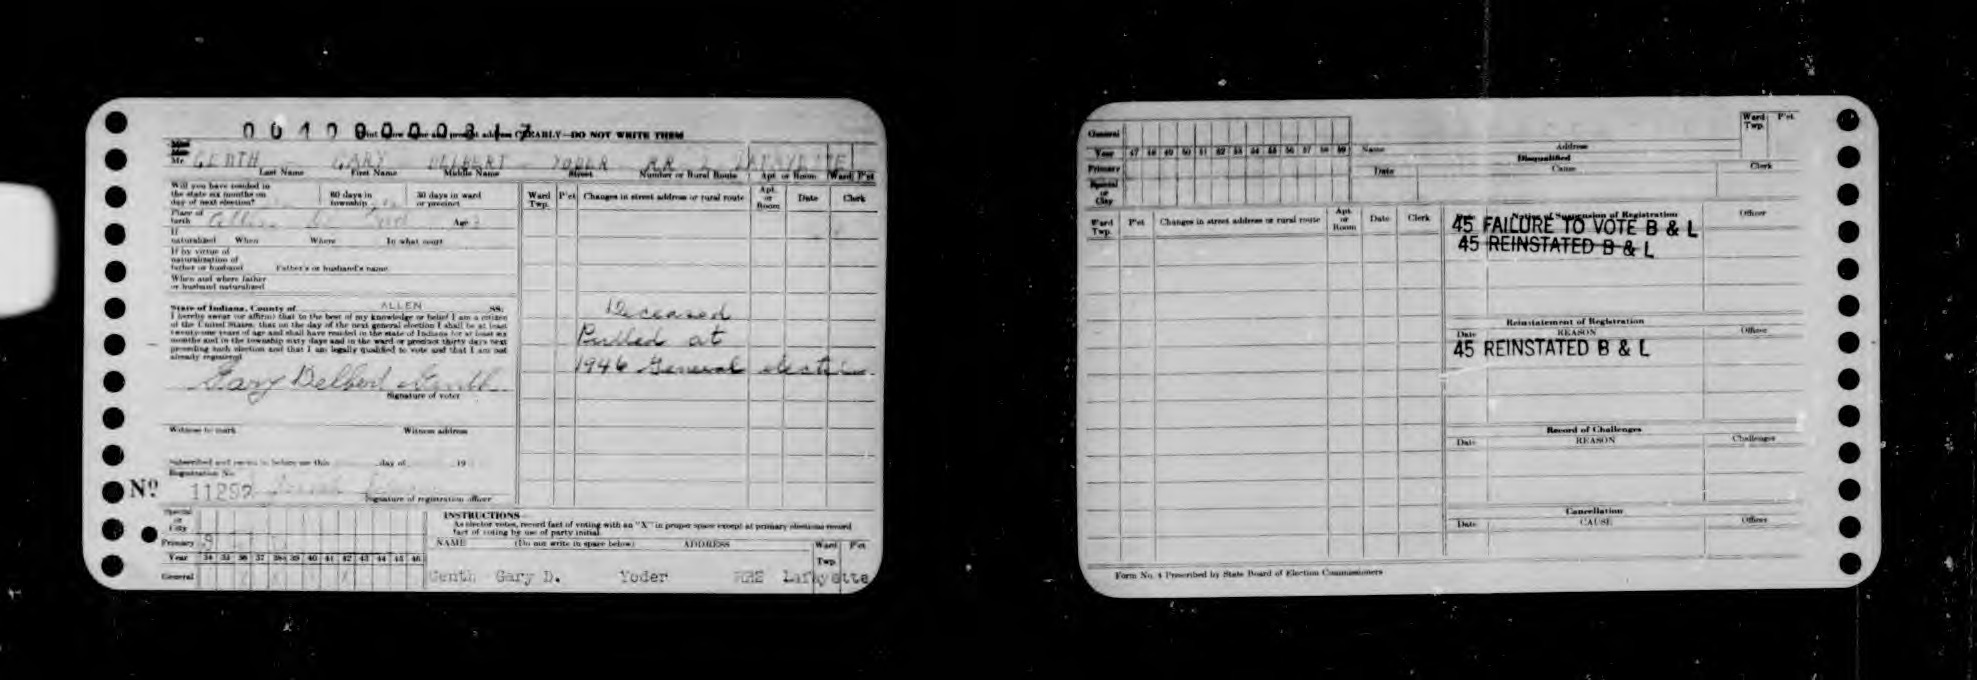 Print your name and present address CLEARLY—DO NOT WRITE THEM
Mr. GENTH GARY DELBERT YODER RR 2 LAFAYETTE
Last Name First Name Middle Name Street Number or Rural Route Apt or Room Ward P'ct
Will you have resided in
the state six months on
day of next election?
60 days in
township
30 days in ward
or precinct
Place of
birth
Age
If
naturalized When Where In what court
If by virtue of
naturalization of
father or husband Father's or husband's name
When and where father
or husband naturalized
State of Indiana, County of ALLEN SS:
I hereby swear (or affirm) that to the best of my knowledge or belief I am a citizen
of the United States; that on the day of the next general election I shall be at least
twenty-one years of age and shall have resided in the state of Indiana for at least six
months and in the township sixty days and in the ward or precinct thirty days next
preceding such election and that I am legally qualified to vote and that I am not
already registered
Gary Delbert Genth
Signature of voter
Witness to mark Witness address
Subscribed and sworn to before me this day of 19
Registration No.
No 11292
Signature of registration officer
Ward
Twp.
P'ct
Changes in street address or rural route
Apt.
or
Room
Date
Clerk
Deceased
Pulled at
1946 General election
Special
or
City
Primary
Year 34 35 36 37 38 39 40 41 42 43 44 45 46
General
INSTRUCTIONS
As elector votes, record fact of voting with an "X" in proper space except at primary elections record
fact of voting by use of party initial.
NAME (Do not write in space below) ADDRESS
Ward
Twp.
P'ct
Genth Gary D. Yoder RR2 Lafayette
General
Year 47 48 49 50 51 52 53 54 55 56 57 58 59
Primary
Special
or
City
Name Address
Ward
Twp.
P'ct.
Disqualified
Date Cause Clerk
Ward
Twp.
P'ct
Changes in street address or rural route
Apt.
or
Room
Date
Clerk
Notice of Suspension of Registration
Officer
45 FAILURE TO VOTE B & L
45 REINSTATED B & L
Reinstatement of Registration
Date REASON Officer
45 REINSTATED B & L
Record of Challenges
Date REASON Challenger
Cancellation
Date CAUSE Officer
Form No. 4 Prescribed by State Board of Election Commissioners